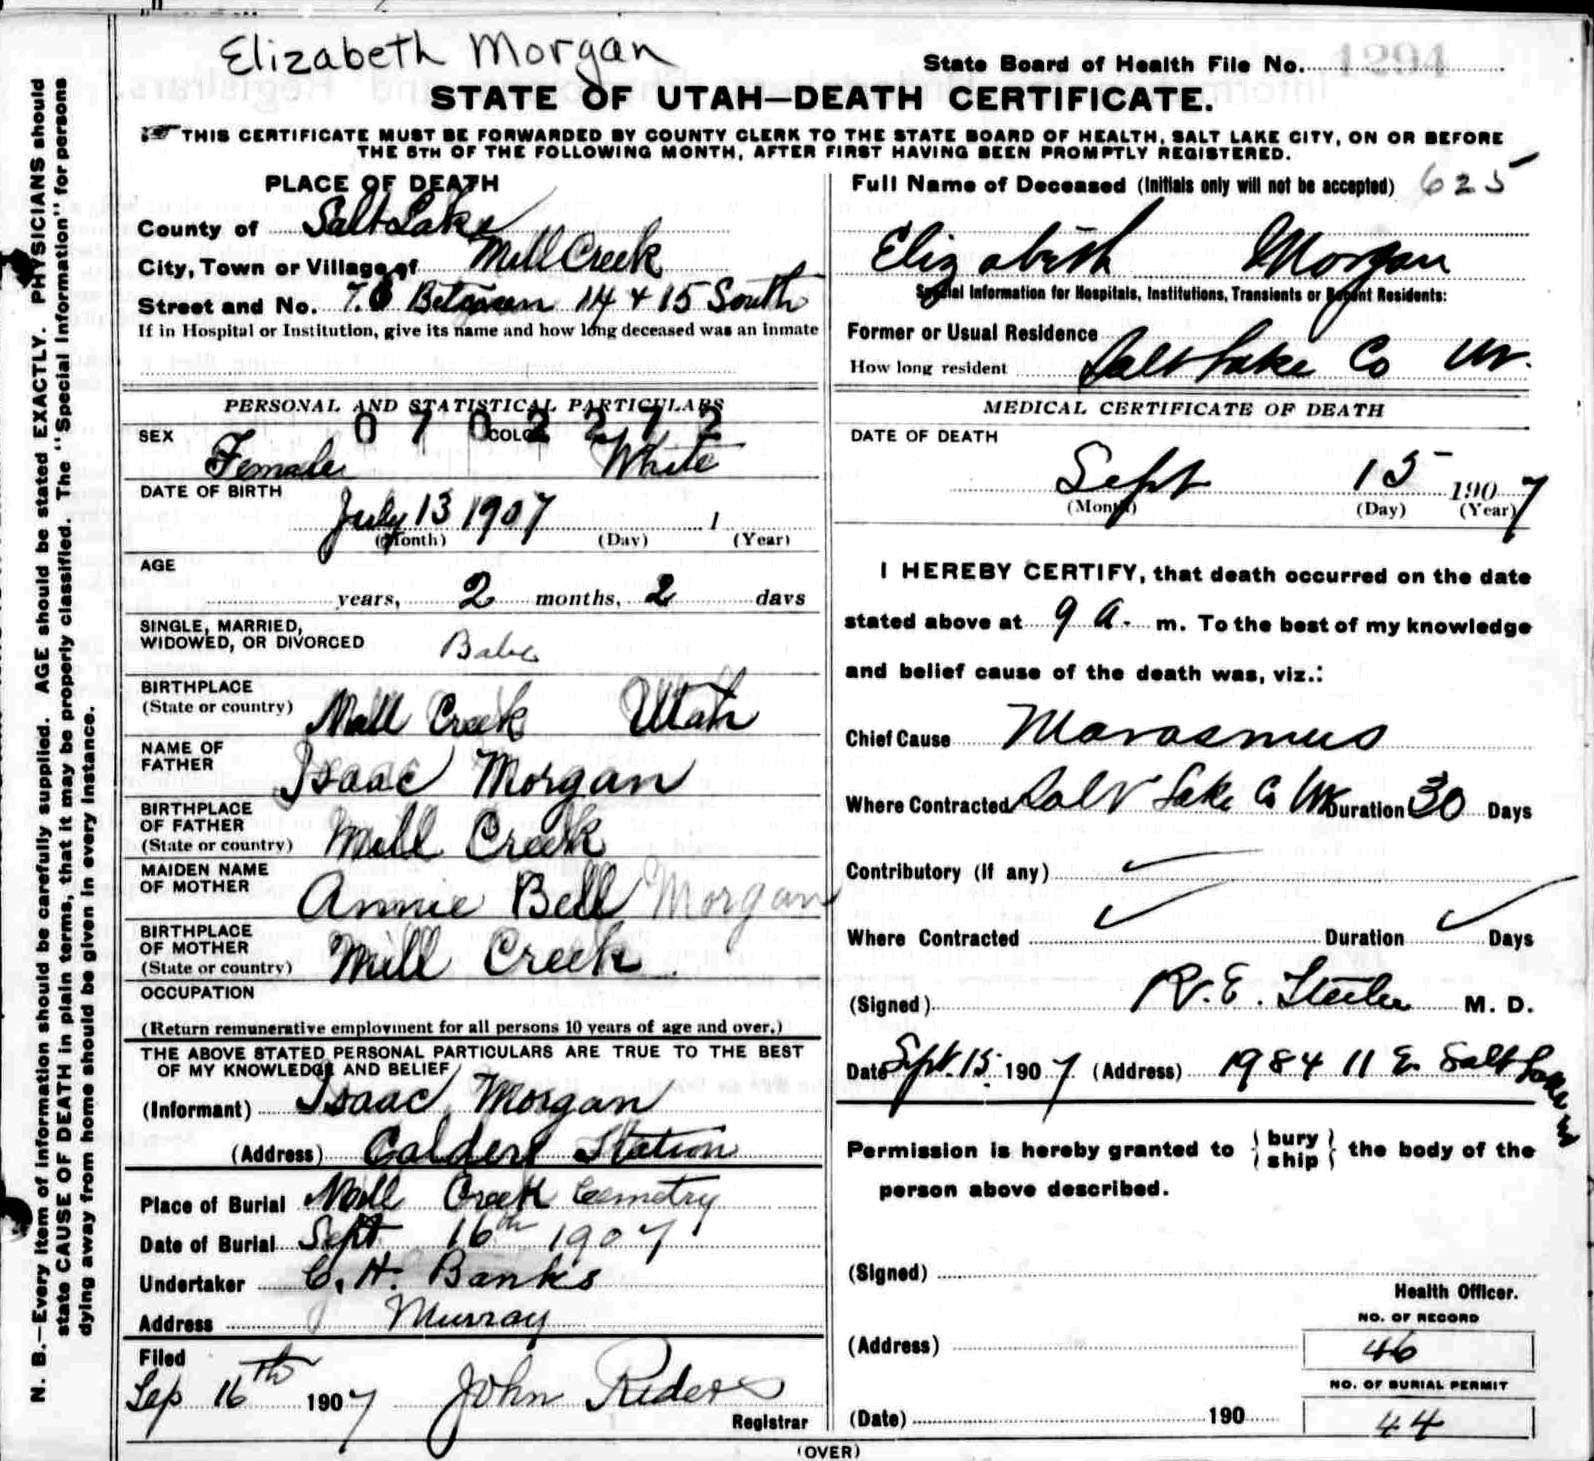 Elizabeth Morgan
State Board of Health File No. 1294
STATE OF UTAH—DEATH CERTIFICATE.
THIS CERTIFICATE MUST BE FORWARDED BY COUNTY CLERK TO THE STATE BOARD OF HEALTH, SALT LAKE CITY, ON OR BEFORE
THE 5TH OF THE FOLLOWING MONTH, AFTER FIRST HAVING BEEN PROMPTLY REGISTERED.
N. B.—Every item of information should be carefully supplied. AGE should be stated EXACTLY. PHYSICIANS should
state CAUSE OF DEATH in plain terms, that it may be properly classified. The "Special Information" for persons
dying away from home should be given in every instance.
PLACE OF DEATH
County of Salt Lake
City, Town or Village of Mill Creek
Street and No. 7. Between 14 + 15 South
If in Hospital or Institution, give its name and how long deceased was an inmate
PERSONAL AND STATISTICAL PARTICULARS
0 7 0 2 2 7 2
SEX Female COLOR White
DATE OF BIRTH
July 13 1907 1
(Month) (Day) (Year)
AGE
years, 2 months, 2 days
SINGLE, MARRIED,
WIDOWED, OR DIVORCED Babe
BIRTHPLACE
(State or country) Mill Creek Utah
NAME OF
FATHER Isaac Morgan
BIRTHPLACE
OF FATHER
(State or country) Mill Creek
MAIDEN NAME
OF MOTHER Annie Bell Morgan
BIRTHPLACE
OF MOTHER
(State or country) Mill Creek
OCCUPATION
(Return remunerative employment for all persons 10 years of age and over.)
THE ABOVE STATED PERSONAL PARTICULARS ARE TRUE TO THE BEST
OF MY KNOWLEDGE AND BELIEF
(Informant) Isaac Morgan
(Address) Calders Station
Place of Burial Mill Creek Cemetry
Date of Burial Sept 16th 1907
Undertaker C. H. Banks
Address Murray
Filed
Sep 16th 1907 John Riders
Registrar
Full Name of Deceased (Initials only will not be accepted) 625
Elizabeth Morgan
Special Information for Hospitals, Institutions, Transients or Recent Residents:
Former or Usual Residence
How long resident Salt Lake Co Ut.
MEDICAL CERTIFICATE OF DEATH
DATE OF DEATH
Sept 15 1907
(Month) (Day) (Year)
I HEREBY CERTIFY, that death occurred on the date
stated above at 9 a. m. To the best of my knowledge
and belief cause of the death was, viz.:
Chief Cause Marasmus
Where Contracted Salt Lake Co Ut Duration 30 Days
Contributory (if any)
Where Contracted Duration Days
(Signed) R. E. M. D.
Date Sept. 15. 1907. (Address) 1984 11 E. Salt Lake
Permission is hereby granted to { bury ship } the body of the
person above described.
(Signed)
Health Officer.
NO. OF RECORD
(Address) 46
NO. OF BURIAL PERMIT
(Date) 190 44
(OVER)